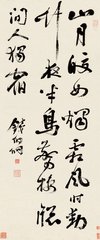 山月皎如燭霜風時動
竹夜半鳥驚棲窗
間人獨宿